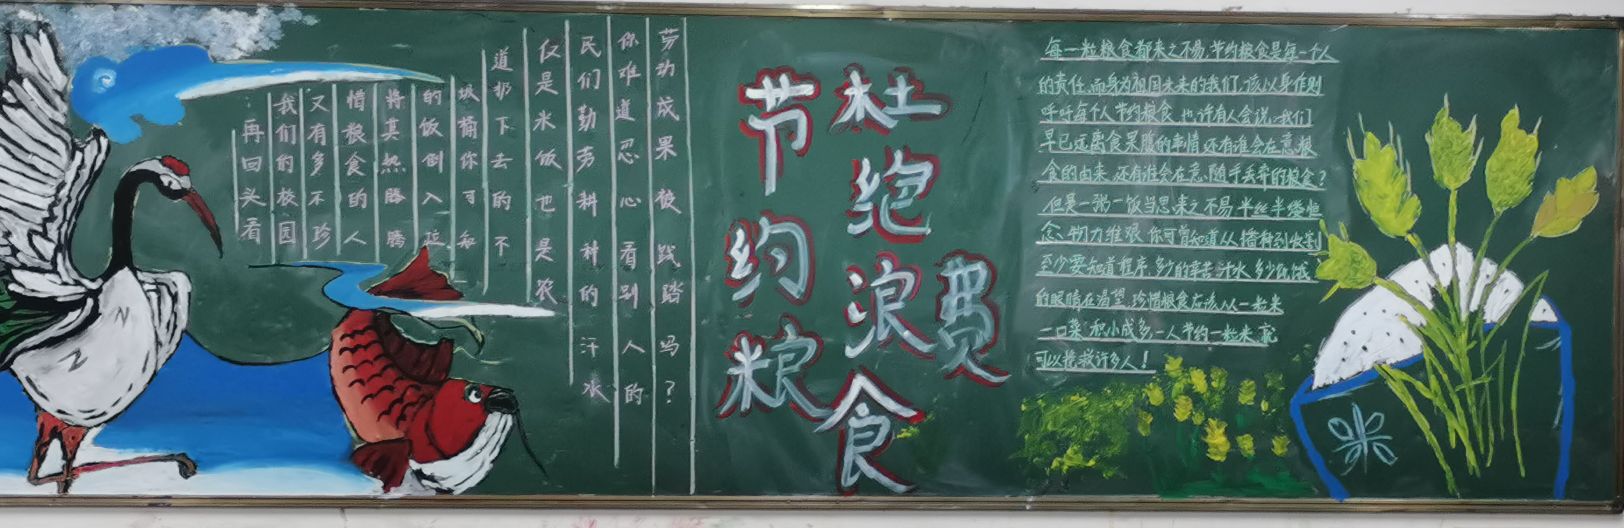 再回头看
我们的校园
又有多不珍
惜粮食的人
将其热腾腾
的饭倒入垃
圾桶你可知
道扔下去的不
仅是米饭也是农
民们勤劳耕种的汗水
你难道忍心看别人的
劳动成果被践踏吗?
节约粮食
杜绝浪费
每一粒粮食都来之不易,节约粮食是每一个人
的责任.而身为祖国未来的我们,该以身作则
呼吁每个人节约粮食.也许有人会说:我们
早已远离食果腹的事情,还有谁会在意粮
食的由来.还有谁会在意,随手丢弃的粮食?
但是一粥一饭当思来之不易.半丝半缕恒
念物力维艰.你可曾知道从播种到收割
至少要知道程序.多少的辛苦汗水.多少饥饿
的眼睛在渴望.珍惜粮食应该从一粒米
一口菜.积小成多.一人节约一粒米.就
可以挽救许多人!